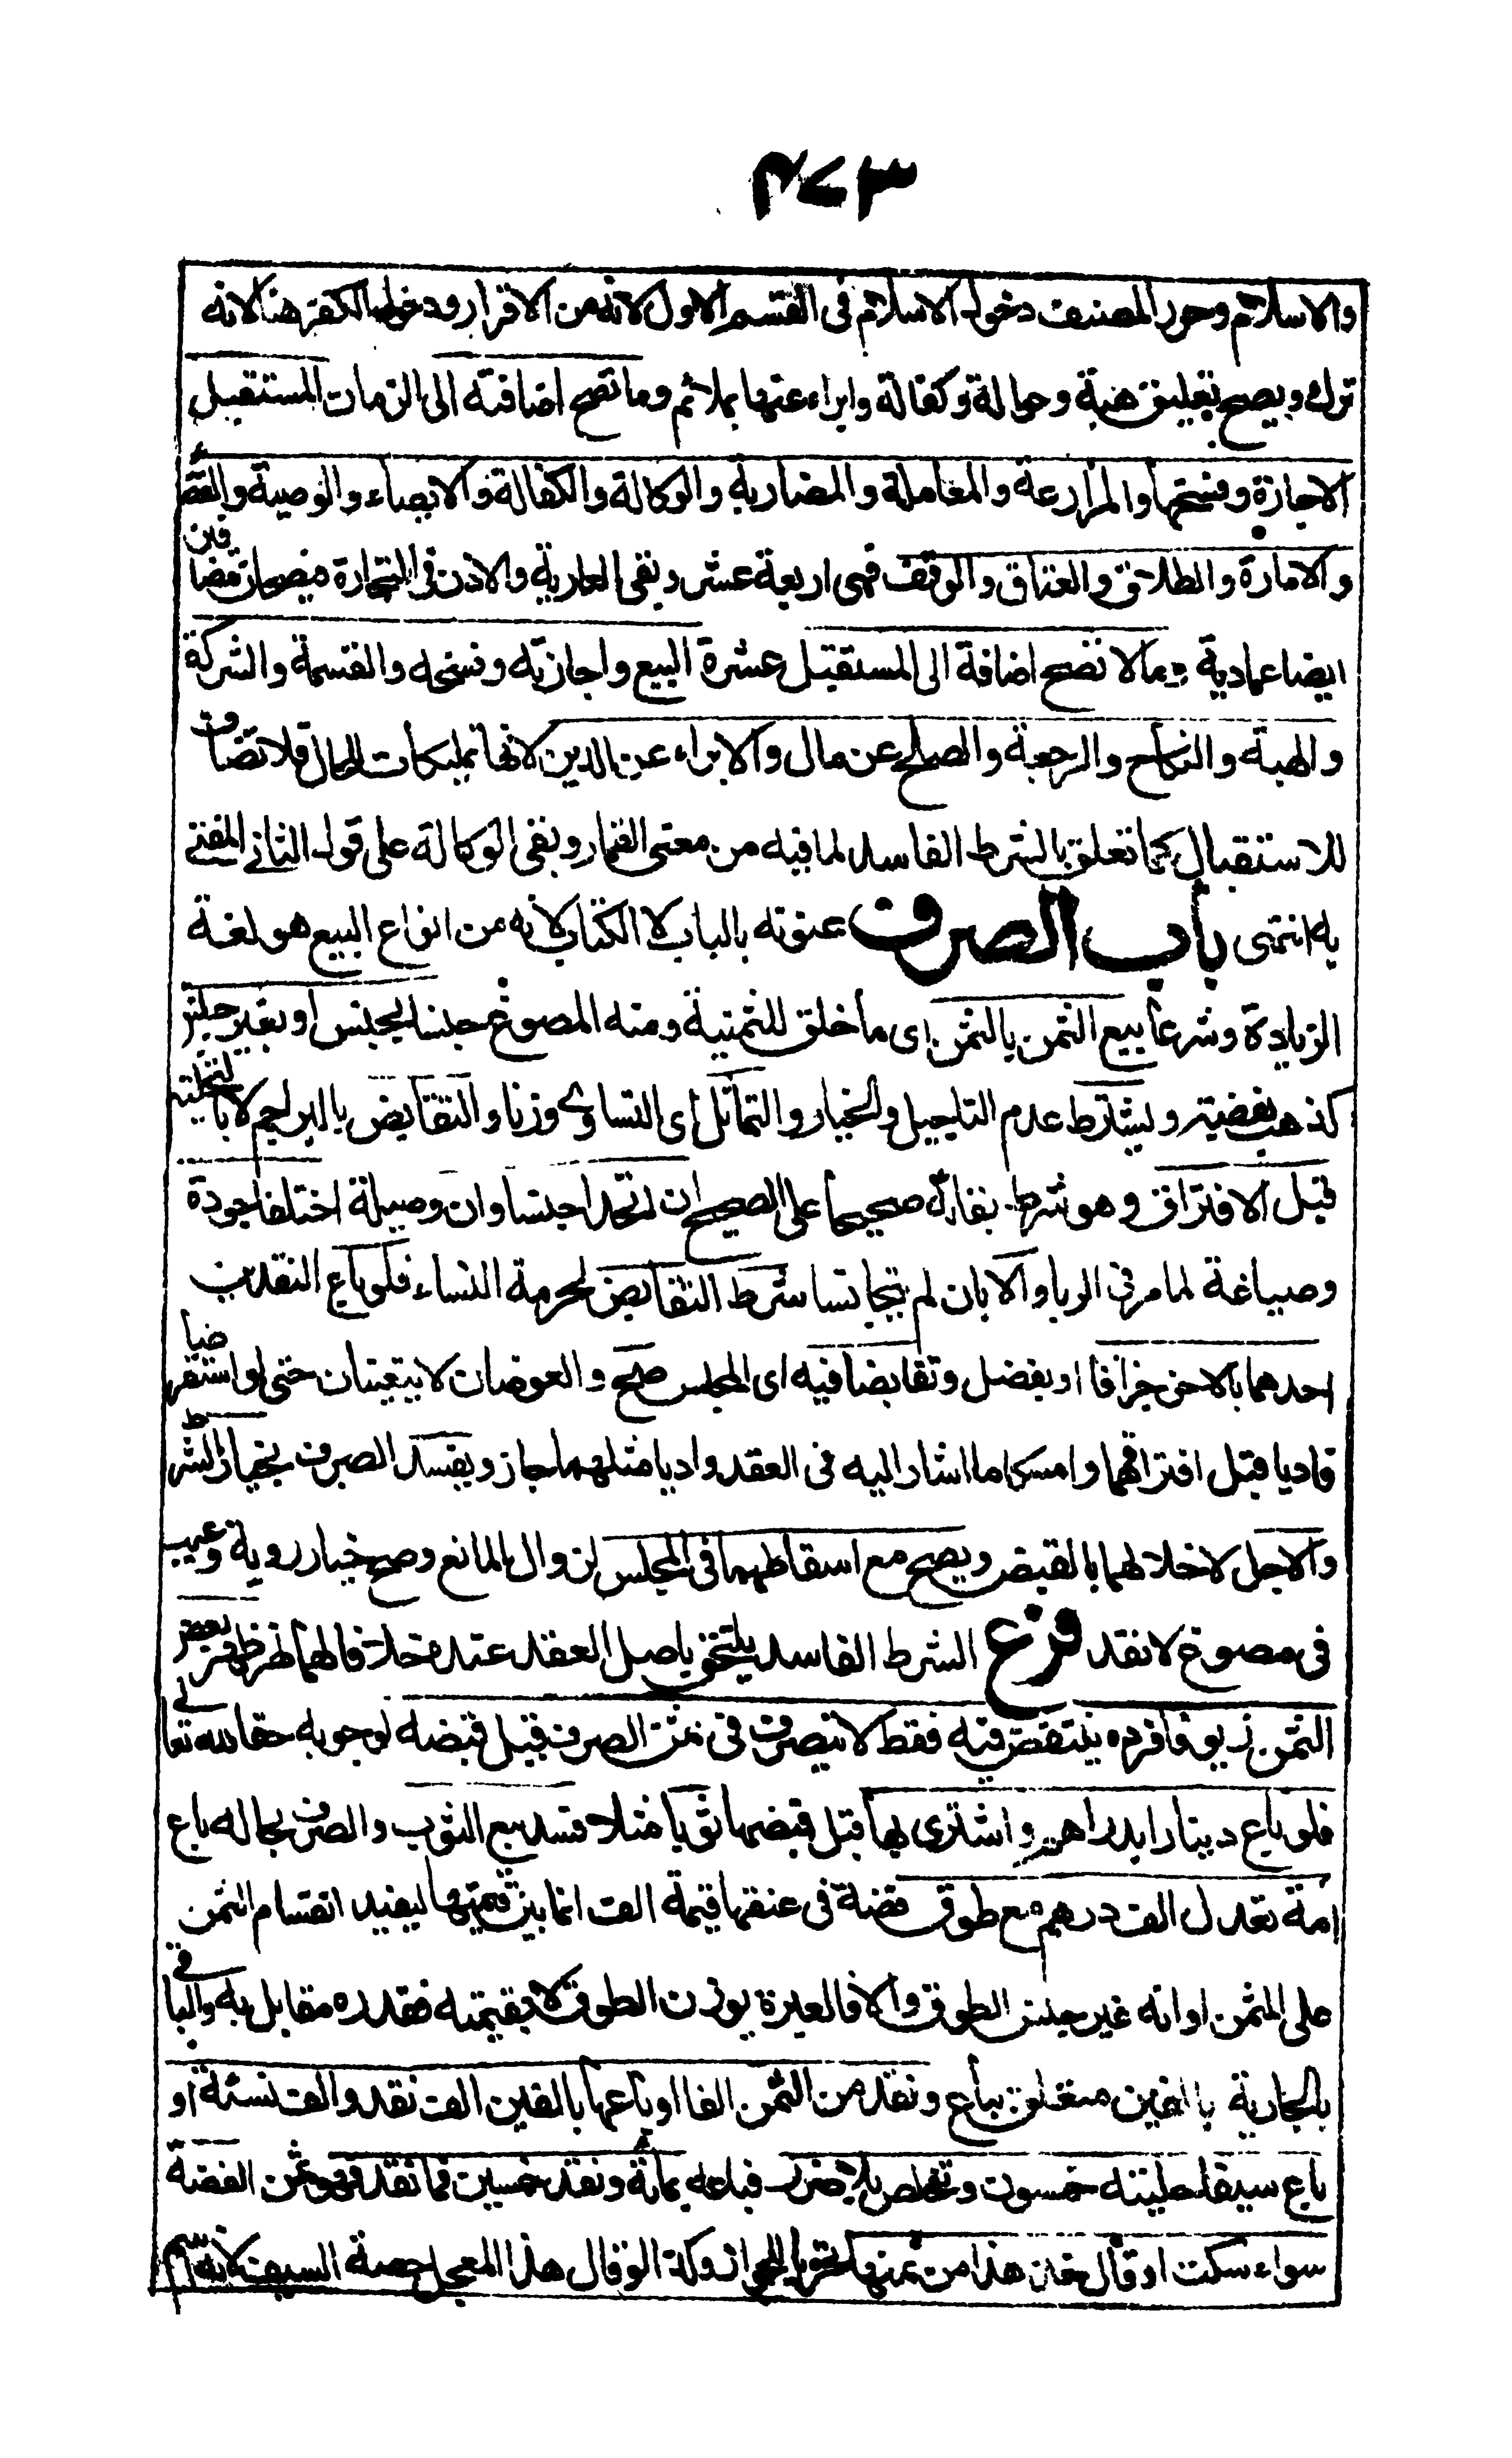 ٣٧٣
والاسلام وحرر المصنف دخول الاسلام فى القسم الاول لانه من الاقرار ودخول الكفر هنا لانه
ترك ويصح تعليق هبة وحوالة وكفالة وابراء عنها بملائم وما تصح اضافته الى الزمان المستقبل
الاجازة وفسخها والمزارعة والمعاملة والمضاربة والوكالة والكفالة والايصاء والوصية والقضاء
والامارة والطلاق والعتاق والوقف فهى اربعة عشر وبقى العارية والاذن فى التجارة فيصحان مضافين
ايضا عمادية وما لا تصح اضافة الى المستقبل عشرة البيع واجازته وفسخه والقسمة والشركة
والهبة والنكاح والرجعة والصلح عن مال والابراء عن الدين لانها تمليكات للحال فلا تضاف
للاستقبال كما تعلق بالشرط الفاسد لما فيه من معنى القمار وبقى الوكالة على قول الثانى المفتى
به انتهى باب الصرف عنونه بالباب لا الكتاب لانه من انواع البيع هو لغة
الزيادة وشرعا بيع الثمن بالثمن اى ما خلق للثمنية ومنه المصوغ جنسا بجنس او بغير جنس
كذهب بفضة ويشترط عدم التاجيل والخيار والتماثل اى التساوى وزنا والتقابض بالبراجم لا بالتخلية
قبل الافتراق وهو شرط بقائه صحيحا على الصحيح ان اتحدا جنسا وان وصلية اختلفا جودة
وصياغة لما مر فى الربا والا بان لم يتجانسا شرط التقابض لحرمة النساء فلو باع النقدين
احدهما بالاخر جزافا او بفضل وتقابضا فيه اى المجلس صح والعوضان لا يتعينان حتى لو استقرضا
فاديا قبل افتراقهما وامسكا ما اشار اليه فى العقد واديا مثلهما جاز ويفسد الصرف بخيار الشرط
والاجل لاخلالهما بالقبض ويصح مع اسقاطهما فى المجلس لزوال المانع وصح خيار روية وعيب
فى مصوغ لا نقد فرع الشرط الفاسد يلتحق باصل العقد عنده خلافا لهما نهر ظهر بعض
الثمن زيوفا فرده ينتقض فيه فقط لا يتصرف فى ثمن الصرف قبل قبضه لوجوبه حقا لله تعالى
فلو باع دينارا بدراهم واشترى بها قبل قبضها ثوبا مثلا فسد بيع الثوب والصرف بحاله باع
امة تعدل الف درهم مع طوق فضة فى عنقها قيمة الف انما بين قيمتها ليفيد انقسام الثمن
على المثمن او انه غير جنس الطوق والا فالعبرة بوزن الطوق لا بقيمته فقدره مقابل به والباقى
بالجارية بالفين متعلق بباع ونقد من الثمن الفا او باعها بالفين الف نقد والف نسئة او
باع سيفا حليته خمسون وتخلص بلا ضرر فباعه بمائة ونقد خمسين فما نقد فهو ثمن الفضة
سواء سكت او قال خذ هذا من ثمنهما تحريا للجواز وكذا لو قال هذا المعجل حصة السيف لانه اسم